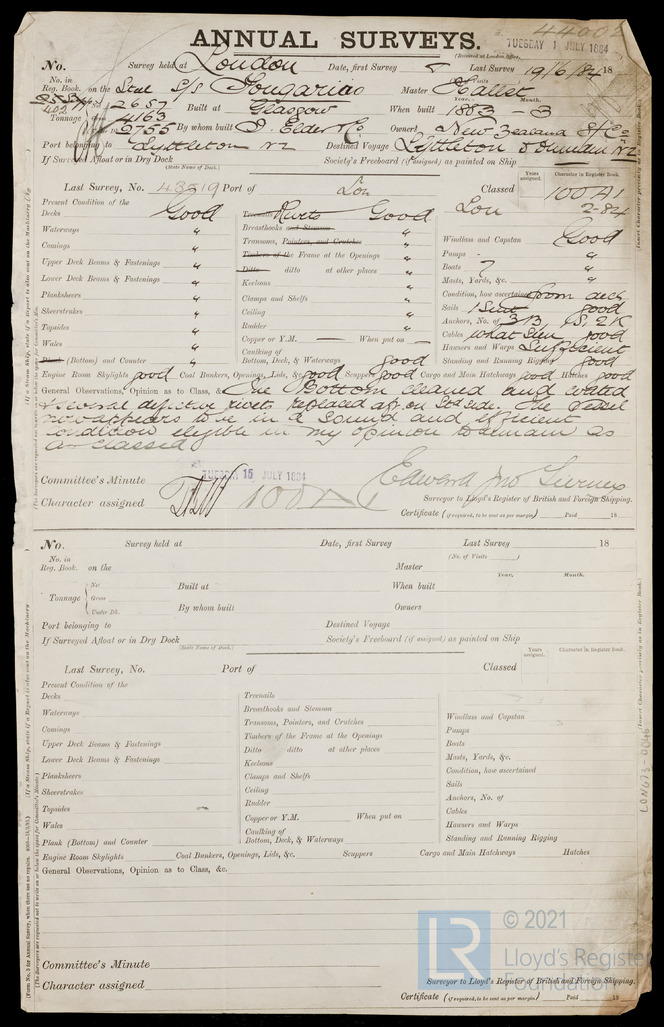 ANNUAL SURVEYS.
(Received at London Office,
TUESDAY 1 JULY 1884
No. Survey held at London Date, first Survey Last Survey 19/6/84 18
No. in Reg. Book. on the Steel S/S Tongariro Master Hallet
Visits Year. Month.
Tonnage 2657 Built at Glasgow When built 1883 - 3
4163
By whom built J. Elder & Co Owners New Zealand S/Co
Port belonging to Lyttleton NZ Destined Voyage Lyttleton & Dunedin NZ
If Surveyed Afloat or in Dry Dock Society's Freeboard (if assigned) as painted on Ship
(State Name of Dock.)
Years assigned. Character in Register Book.
Last Survey, No. 43519 Port of Lon Classed 100A1
Lon 2-84
Present Condition of the
Decks Good Treenails Rivets Good
Waterways " Breasthooks and Stemson "
Comings " Transoms, Pointers, and Crutches "
Upper Deck Beams & Fastenings " Timbers of the Frame at the Openings "
Lower Deck Beams & Fastenings " Ditto ditto at other places "
Planksheers " Keelsons "
Sheerstrakes " Clamps and Shelfs "
Topsides " Ceiling "
Wales " Rudder "
Plank (Bottom) and Counter " Copper or Y.M. — When put on —
Caulking of Bottom, Deck, & Waterways good
Windlass and Capstan Good
Pumps "
Boats 7 "
Masts, Yards, &c. "
Condition, how ascertained from deck
Sails 1 Suit good
Anchors, No. of 3B, 1S, 2K
Cables what seen good
Hawsers and Warps Sufficient
Standing and Running Rigging good
Engine Room Skylights good Coal Bunkers, Openings, Lids, &c. good Scuppers good Cargo and Main Hatchways good Hatches good
General Observations, Opinion as to Class, &c. The Bottom cleaned and coated
& several defective rivets replaced aft on Stbd side. The Vessel
now appears to be in a sound and efficient
condition eligible in my opinion to remain as
as classed
Committee's Minute TUESDAY 15 JULY 1884
Character assigned 100A
Surveyor to Lloyd's Register of British and Foreign Shipping.
Certificate (if required, to be sent as per margin) Paid 18
No. Survey held at Date, first Survey Last Survey 18
(No. of Visits )
No. in Reg. Book. on the Master
Year. Month.
Tonnage Net Built at When built
Gross
Under Dk. By whom built Owners
Port belonging to Destined Voyage
If Surveyed Afloat or in Dry Dock Society's Freeboard (if assigned) as painted on Ship
(State Name of Dock.)
Years assigned. Character in Register Book.
Last Survey, No. Port of Classed
Present Condition of the
Decks Treenails
Waterways Breasthooks and Stemson
Comings Transoms, Pointers, and Crutches
Upper Deck Beams & Fastenings Timbers of the Frame at the Openings
Lower Deck Beams & Fastenings Ditto ditto at other places
Planksheers Keelsons
Sheerstrakes Clamps and Shelfs
Topsides Ceiling
Wales Rudder
Plank (Bottom) and Counter Copper or Y.M. When put on
Caulking of Bottom, Deck, & Waterways
Windlass and Capstan
Pumps
Boats
Masts, Yards, &c.
Condition, how ascertained
Sails
Anchors, No. of
Cables
Hawsers and Warps
Standing and Running Rigging
Engine Room Skylights Coal Bunkers, Openings, Lids, &c. Scuppers Cargo and Main Hatchways Hatches
General Observations, Opinion as to Class, &c.
Committee's Minute
Character assigned
Surveyor to Lloyd's Register of British and Foreign Shipping.
Certificate (if required, to be sent as per margin) Paid 18
LON673-0046
LR
© 2021
Lloyd's Register
Foundation